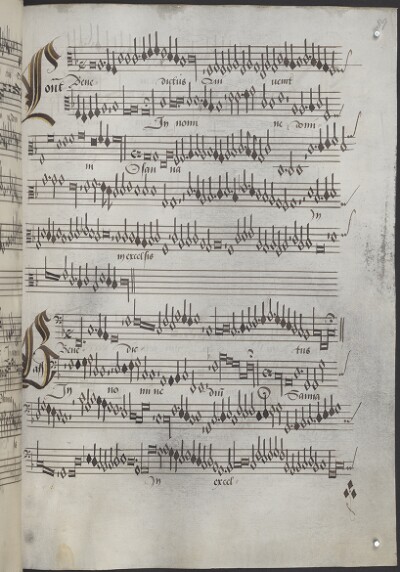 Cont Bene dictus Qui venit
In nomi ne domi
ni Osan na
In
in excelsis
Bass Bene dic tus
In no mine dni Osanna
In excel